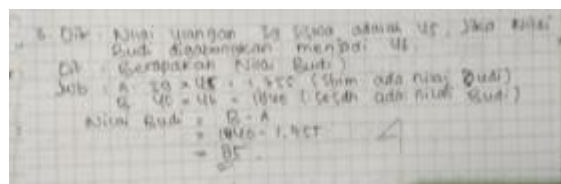 3. Dit : Nilai ulangan 39 siswa adalah 45, Jika Nilai
Budi digabungkan menjadi 46.
Dit : Berapakah Nilai Budi?
Jwb : A 39 x 45 = 1.755 (sblm ada nilai Budi)
B 40 x 46 = 1840 (sesdh ada nilai Budi)
Nilai Budi = B - A
= 1840 - 1.755
= 85